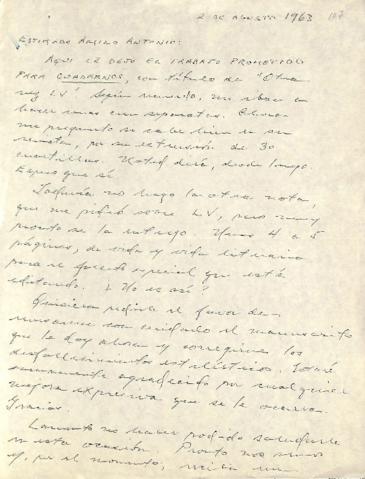 2 de agosto 1963
Estimado Antonio:
Aquí le dejo el trabajo prometido
para Cuadernos, con título de "Otra
vez L.V." Según recuerdo, me
hacer unas cien separatas. Ahora
me pregunto si cabe bien en su
revista, por su extensión de 30
cuartillas. Usted dirá, desde luego.
Espero que sí.
Todavía no hago la otra nota,
que me pidió sobre L.V., pero muy
pronto se la entrego. Unas 4 a 5
páginas, de vida y vida literaria
para el especial que está
editando. ¿No es así?
Quisiera pedirle el favor de
con cuidado el manuscrito
que le doy ahora y corregirme los
desfallecimientos estilísticos. Estaré
sumamente agradecido por cualquier
mejora expresiva que se le ocurra.
Gracias.
Lamento no haber podido saludarle
en esta ocasión. Pronto nos vemos
y, por el momento, reciba un